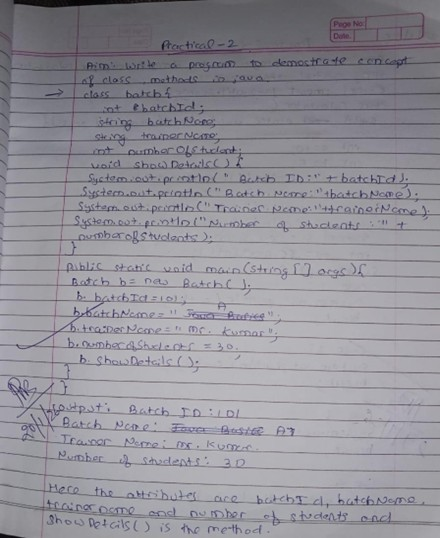 Page No:
Date:
Practical - 2
Aim: Write a program to demostrate concept
of class, methods in java.
→ class batch {
int batchId;
string batchName;
string trainerName;
int numberOfStudent;
void showDetails() {
System.out.println(" Batch ID:" + batchId);
System.out.println("Batch Name: "+batchName);
System.out.println("Trainer Name:"+trainerName);
System.out.println("Number of students :" +
numberofstudents);
}
public static void main(string [] args) {
Batch b= new Batch();
b. batchId=101;
b.batchName = " Java Basics A";
b.trainerName=" mr. Kumar";
b.numberofstudents = 30;
b. showDetails();
}
}
output: Batch ID: 101
Batch Name: Java Basics A7
Trainer Name: mr. Kumar.
Number of students: 30
Here the attributes are batchId, batchName,
trainername and number of students and
showDetails() is the method.